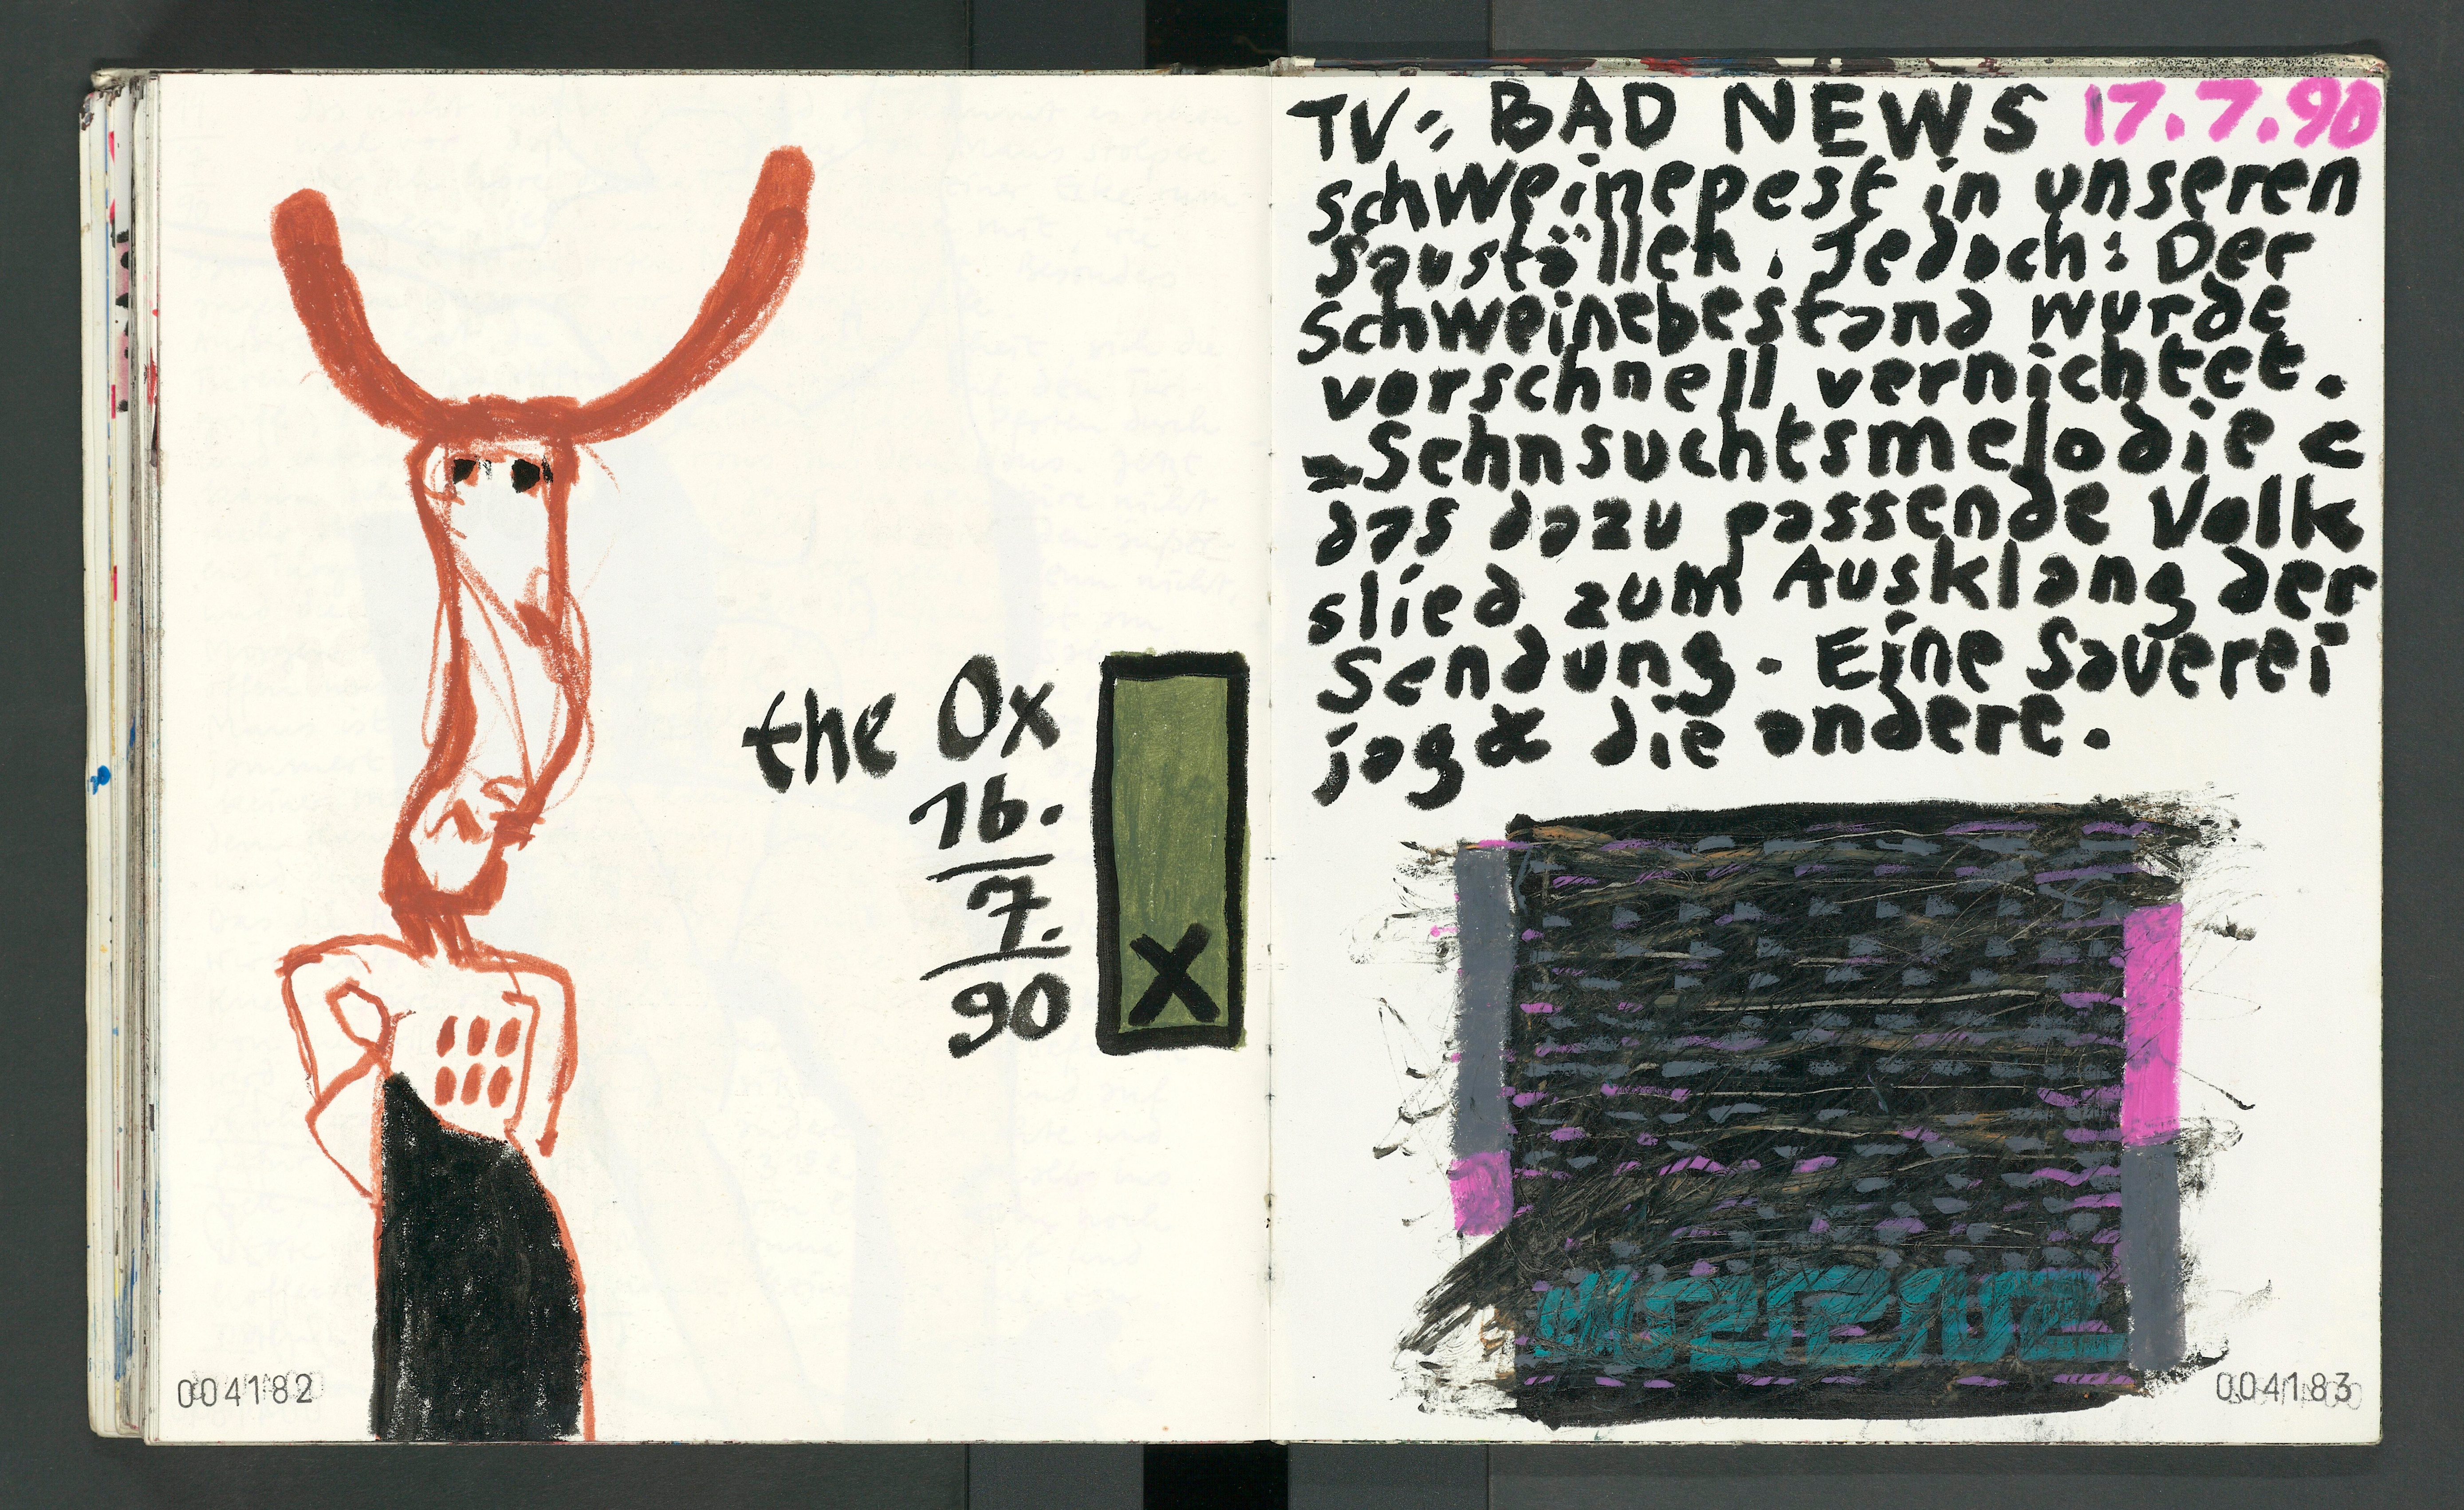 the Ox
16.
7.
90
X
004182
TV = BAD NEWS 17.7.90
Schweinepest in unseren
Sauställen. Jedoch: Der
Schweinebestand wurde
vorschnell vernichtet.
=Sehnsuchtsmelodie =
das dazu passende Volk
slied zum Ausklang der
Sendung. Eine Sauerei
jagt die andere.
004183